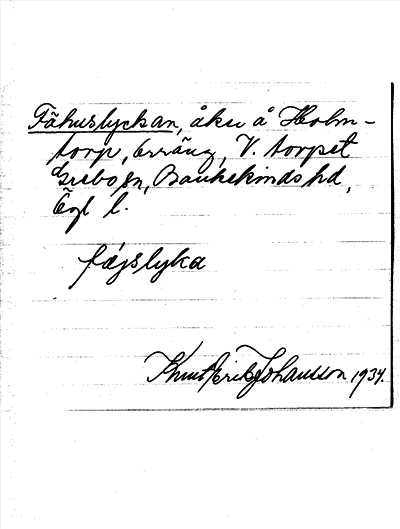 Fähuslyckan, åker å Holm-
torp, ärräng, V. torpet
Grebo sn, Bankekinds hd,
Ög l.
fäjslyka
Knut Erik Johansson 1934.